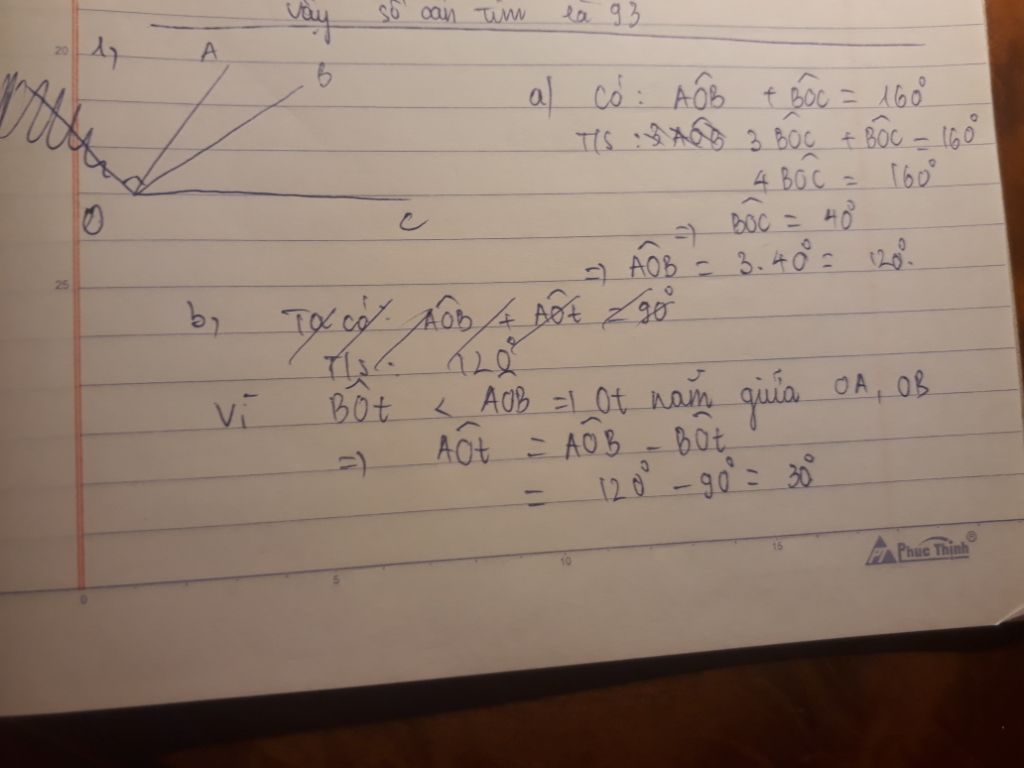 Vậy số cần tìm là 93
20
1,
A
B
O
C
a) Có: AÔB + BÔC = 160°
T/S: 3 BÔC + BÔC = 160°
4 BÔC = 160°
=> BÔC = 40°
=> AÔB = 3.40° = 120°.
25
b, Ta có: AÔB + AÔt = 90°
T/S: 120°
Vì BÔt < AOB => Ot nằm giữa OA, OB
=> AÔt = AÔB - BÔt
= 120° - 90° = 30°
0 5 10 15
Phuc Thinh®